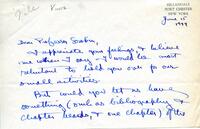 HILLANDALE
PORT CHESTER
NEW YORK
June 15
1944
Dear Professor Sorokin,
I appreciate your feelings, & believe
me when I say I would be most
reluctant to hold you up for our
small activities.
But could you let us have
something (such as bibliography &
chapter heads, & one chapter) of the